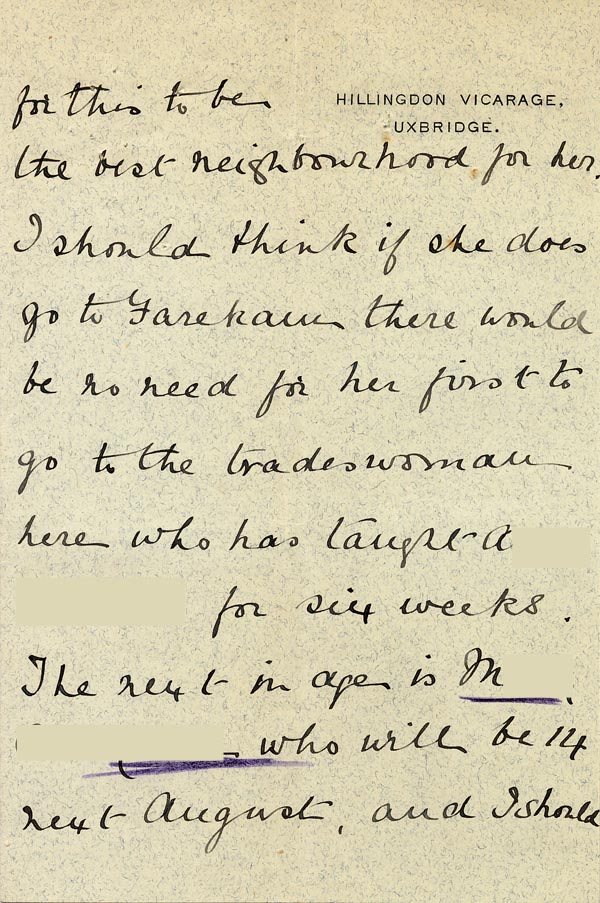 HILLINGDON VICARAGE,
UXBRIDGE.
for this to be
the best neighbourhood for her.
I should think if she does
go to Fareham there would
be no need for her first to
go to the tradeswoman
here who has taught A
for six weeks.
The next in age is M
who will be 14
next August, and I should